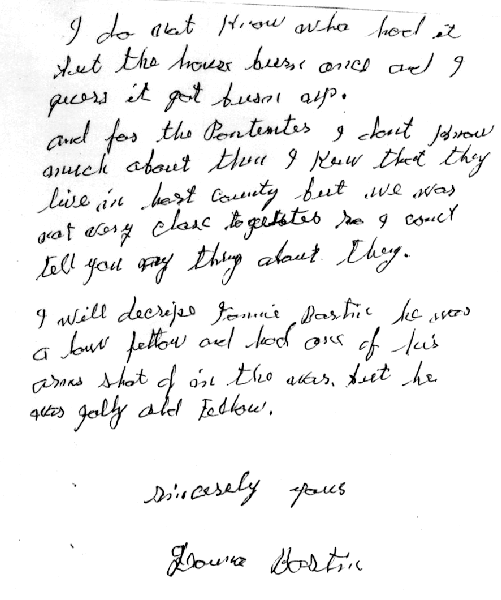 I do not Know who hod it
but the house burn once and I
guess it got burn up.
and for the Pententes I dont Know
much about them I Knew that they
live in hart County but we was
not very close togetates so I conct
tell you any thing about they.
I will decripe Tonnie Bastin he was
a low fellow and had one of his
arms shot of in the war. but he
was golly old Fellow.
sincerely yours
Bastin